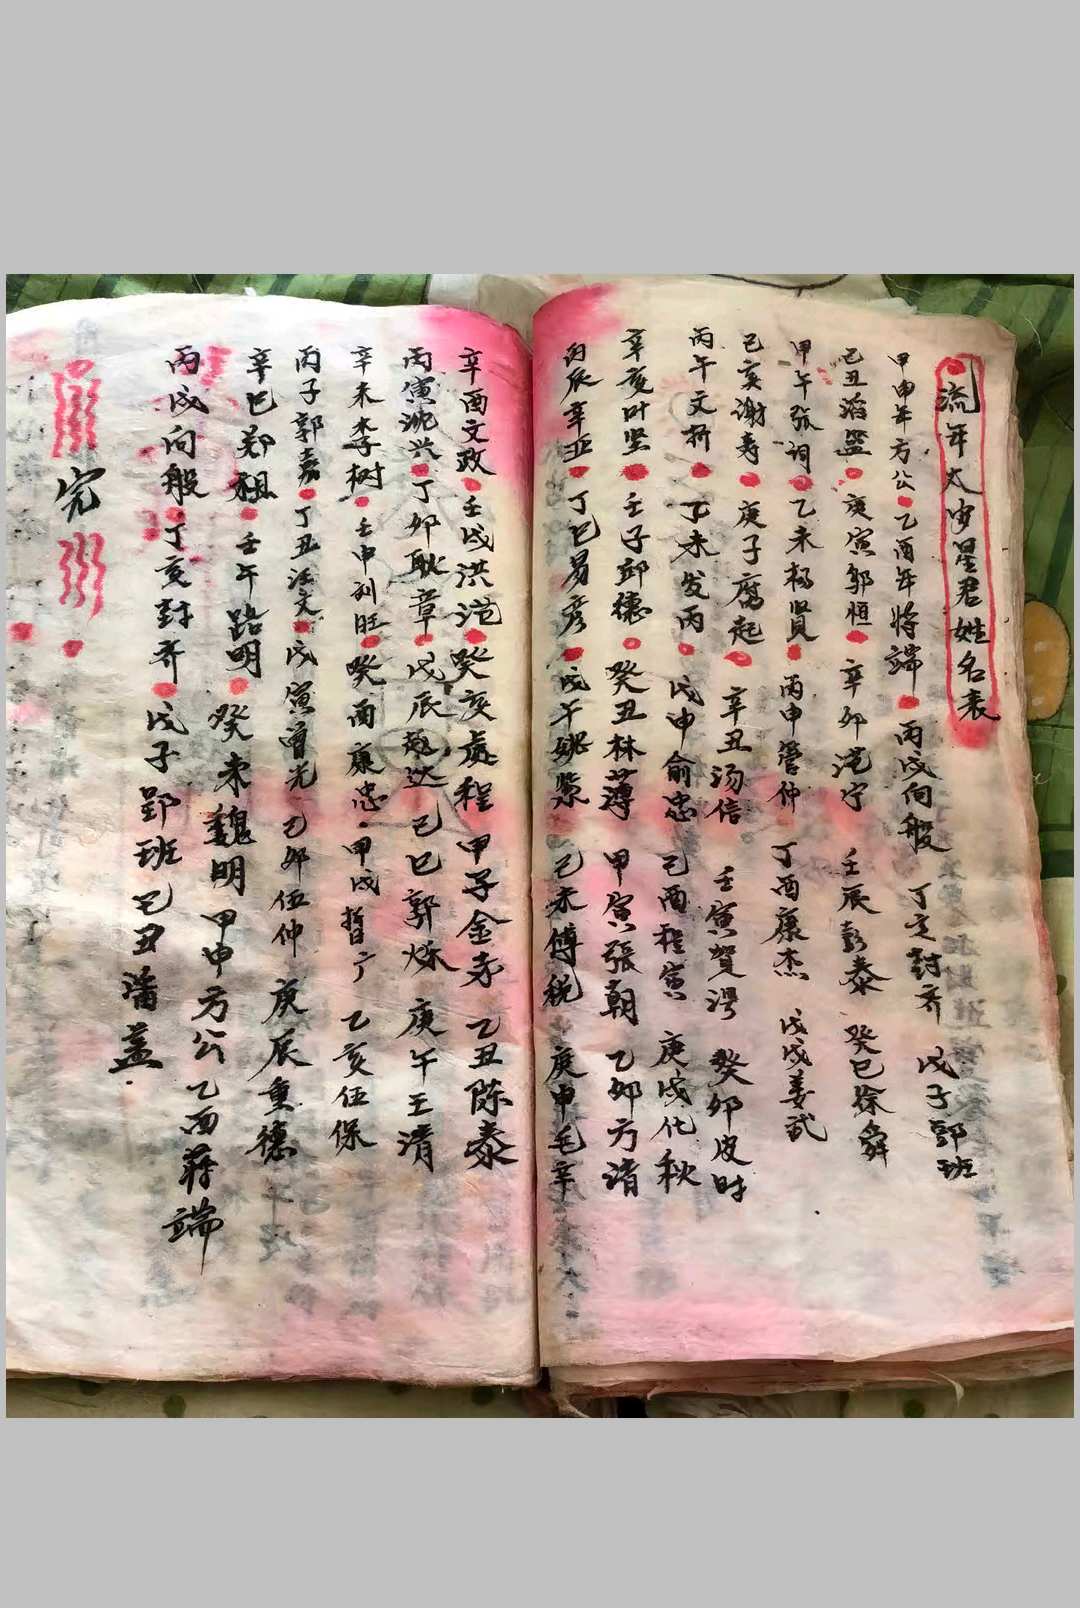 流年太岁星君姓名表
甲申年方公 乙酉年将端 丙戌向般 丁亥封齐 戊子郢班
己丑潘盖 庚寅邬恒 辛卯范宁 壬辰彭泰 癸巳徐舜
甲午张词 乙未杨贤 丙申管仲 丁酉康杰 戊戌姜武
己亥谢寿 庚子腐起 辛丑汤信 壬寅贺谔 癸卯皮时
丙午文折 丁未发丙 戊申俞忠 己酉程寅 庚戌化秋
辛亥叶坚 壬子邱德 癸丑林薄 甲寅張朝 乙卯方清
丙辰辛亚 丁巳易彦 戊午姚黎 己未傅税 庚申毛辛
辛酉文政 壬戌洪范 癸亥虞程 甲子金赤 乙丑陈泰
丙寅沈兴 丁卯耿章 戊辰赵达 己巳郭灿 庚午王清
辛未李树 壬申刘旺 癸酉康忠 甲戌誓广 乙亥伍保
丙子郭嘉 丁丑汪文 戊寅曾光 乙卯伍仲 庚辰重德
辛巳郑祖 壬午路明 癸未魏明 甲申方公 乙酉蒋端
丙戌向般 丁亥封齐 戊子郢班 己丑潘盖
完